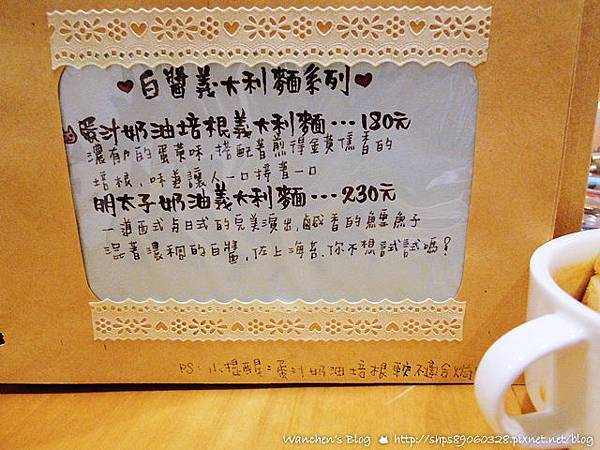 白醬義大利麵系列
蛋汁奶油培根義大利麵...180元
濃郁的蛋黃味,搭配著煎得金黃傳香的
培根,味美讓人一口接著一口
明太子奶油義大利麵...230元
一道西式与日式的完美演出,鹹香的鱈魚子
混著濃稠的白醬,佐上海苔,你不想試試嗎?
PS:小提醒:蛋汁奶油培根較不適合焗
Wanchen's Blog http://shps89060328.pixnet.net/blog